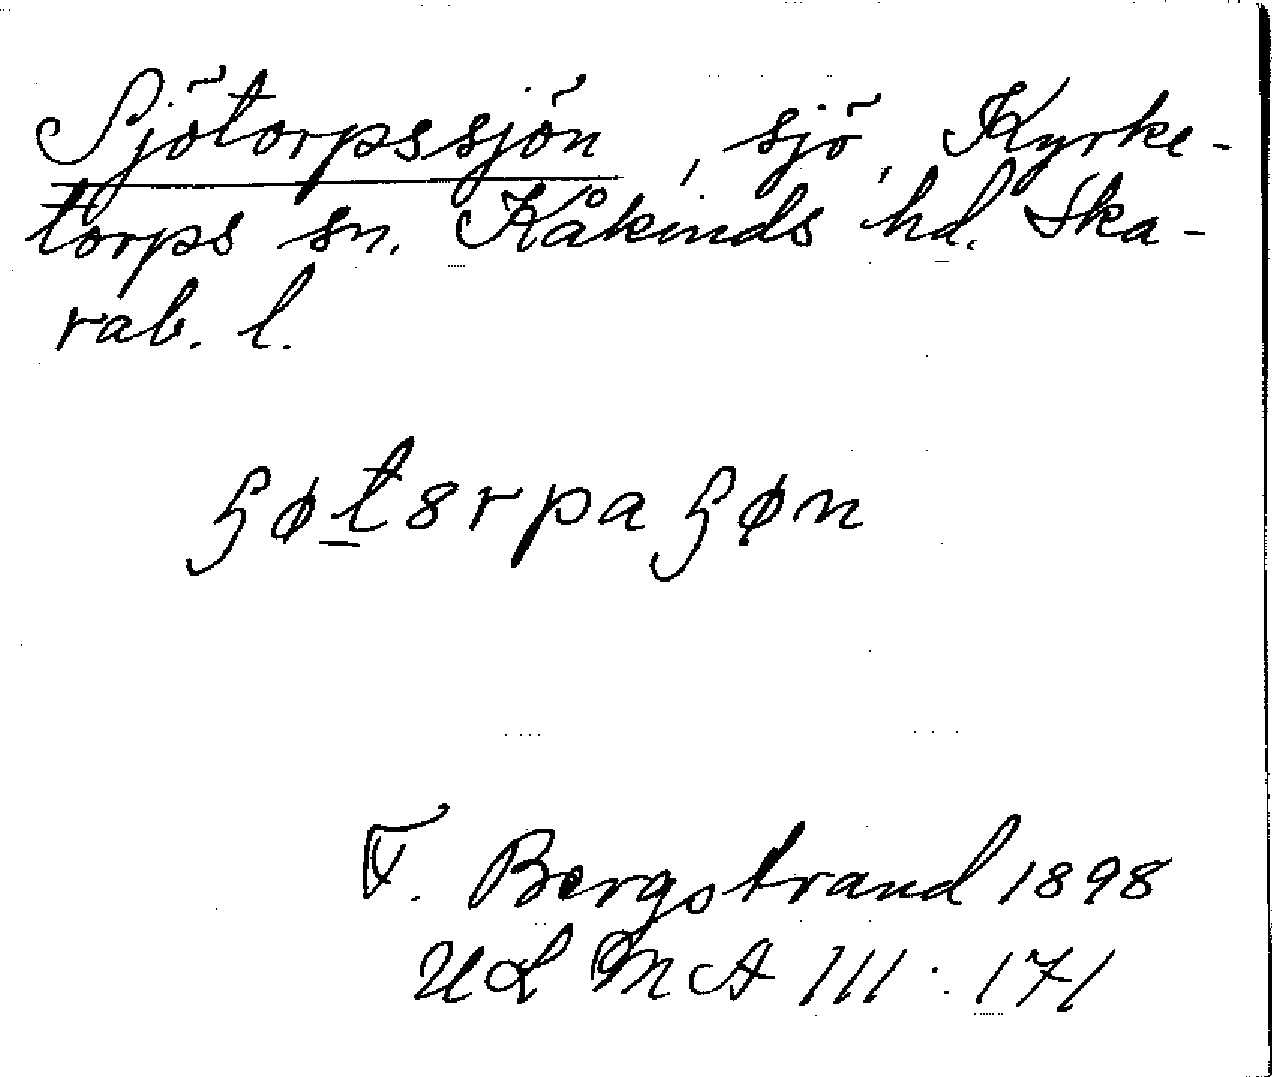 Sjötorpssjön, sjö, Kyrke-
torps sn. Kåkinds hd. Ska-
rab. l.
ʂøt8rpaʂøn
F. Bergstrand 1898
ULMA III : 171